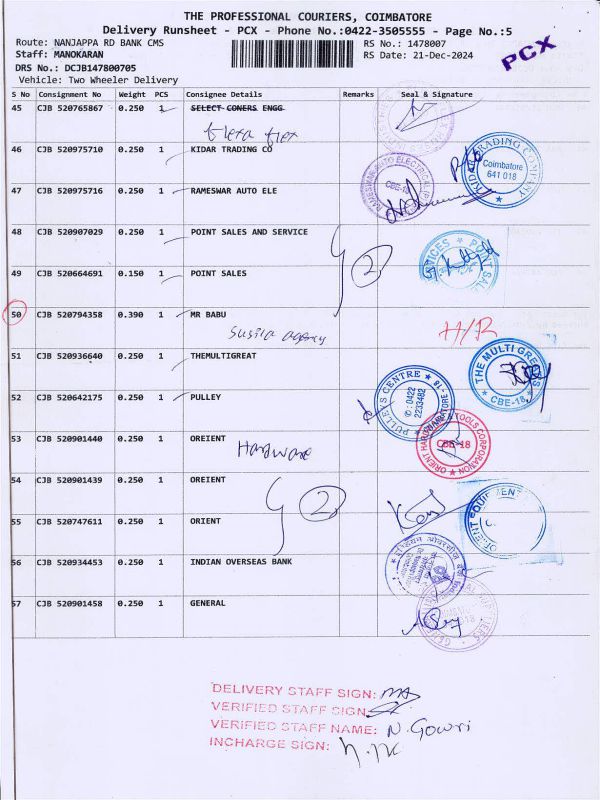 THE PROFESSIONAL COURIERS, COIMBATORE
Delivery Runsheet - PCX - Phone No.:0422-3505555 - Page No.:5
Route: NANJAPPA RD BANK CMS
RS No.: 1478007
Staff: MANOKARAN
RS Date: 21-Dec-2024
PCX
DRS No.: DCJB147800705
Vehicle: Two Wheeler Delivery
S No Consignment No Weight PCS Consignee Details Remarks Seal & Signature
45 CJB 520765867 0.250 1 SELECT CONERS ENGG
46 CJB 520975710 0.250 1 KIDAR TRADING CO
KIDAR TRADING COMPANY
Coimbatore
641 018
47 CJB 520975716 0.250 1 RAMESWAR AUTO ELE
CBE-18
48 CJB 520907029 0.250 1 POINT SALES AND SERVICE
2
49 CJB 520664691 0.150 1 POINT SALES
50 CJB 520794358 0.390 1 MR BABU
Susila agency
H/R
51 CJB 520936640 0.250 1 THEMULTIGREAT
THE MULTI GREATS
CBE-18
52 CJB 520642175 0.250 1 PULLEY
PULLEYS CENTRE
0422
2233482
53 CJB 520901440 0.250 1 OREIENT
Hardware
ORIENT HARDWARE & TOOLS CORPORATION
CBE-18
54 CJB 520901439 0.250 1 OREIENT
2
55 CJB 520747611 0.250 1 ORIENT
56 CJB 520934453 0.250 1 INDIAN OVERSEAS BANK
57 CJB 520901458 0.250 1 GENERAL
DELIVERY STAFF SIGN:
VERIFIED STAFF SIGN:
VERIFIED STAFF NAME: N. Gowri
INCHARGE SIGN: